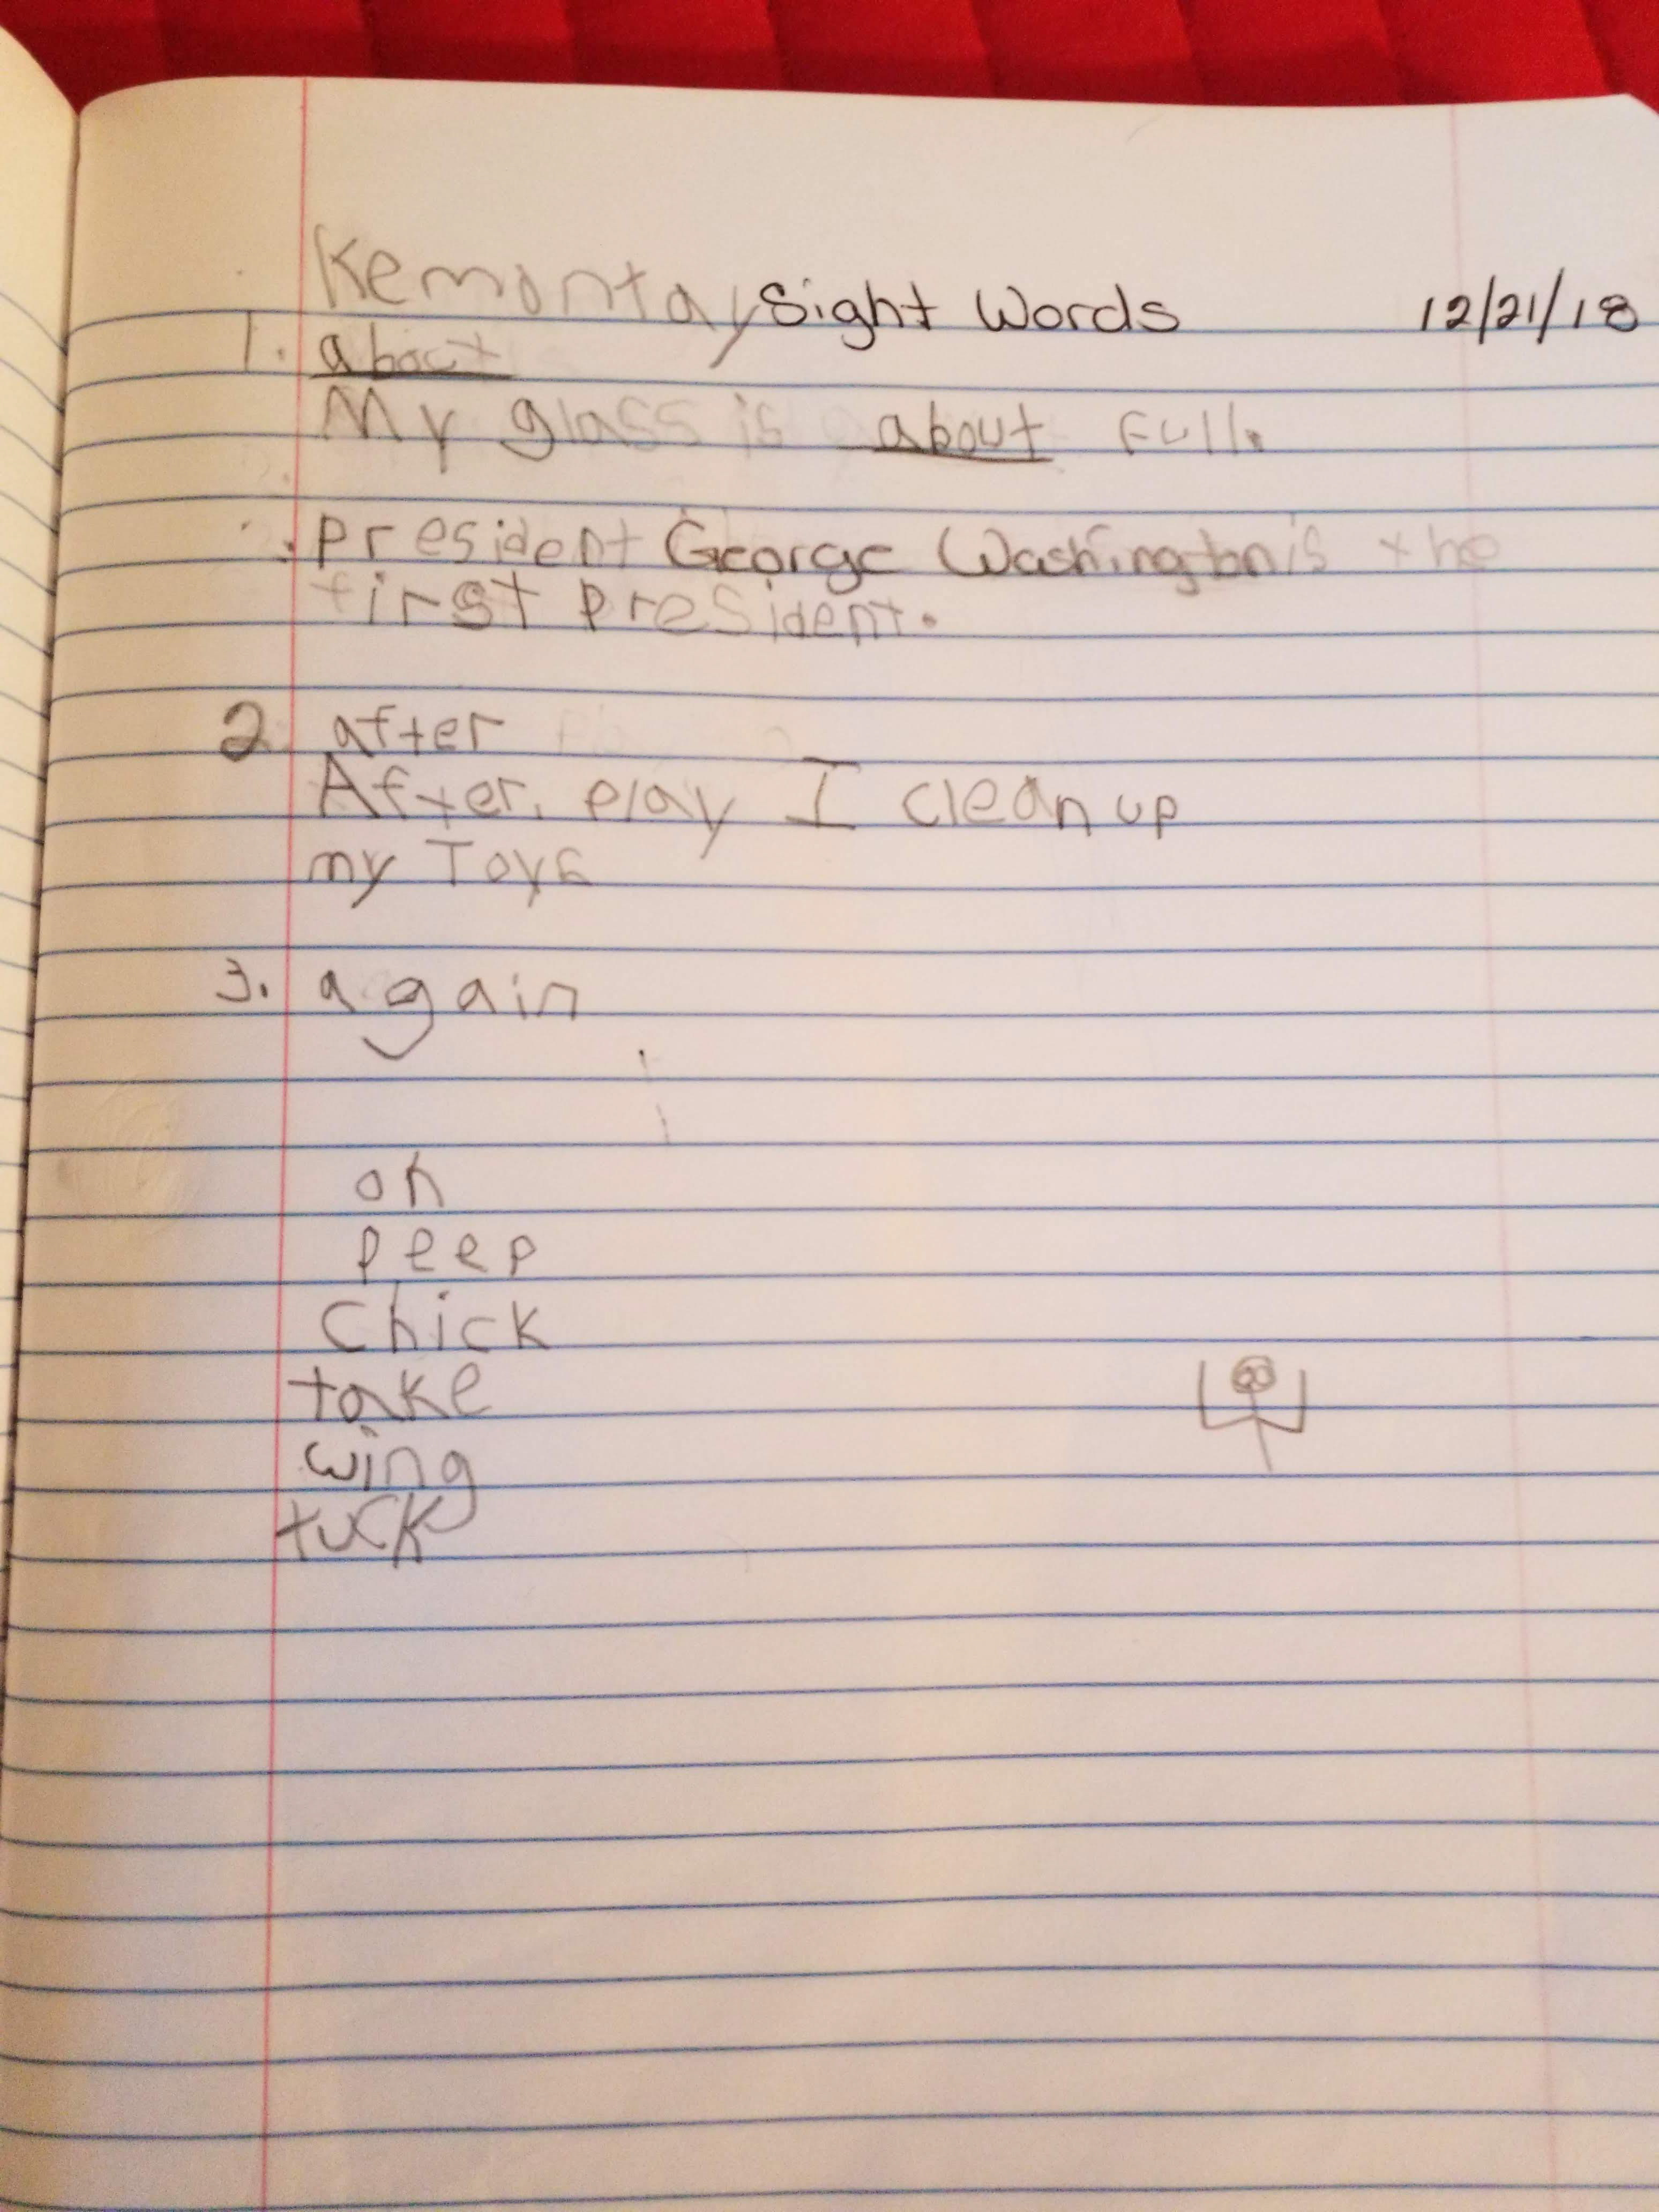 Kemontay Sight Words 12/21/18
1. about
My glass is about Full.
president George Washington is the
first president.
2 after
After, play I clean up
my Toys
3. again
oh
peep
Chick
take
wing
tuck